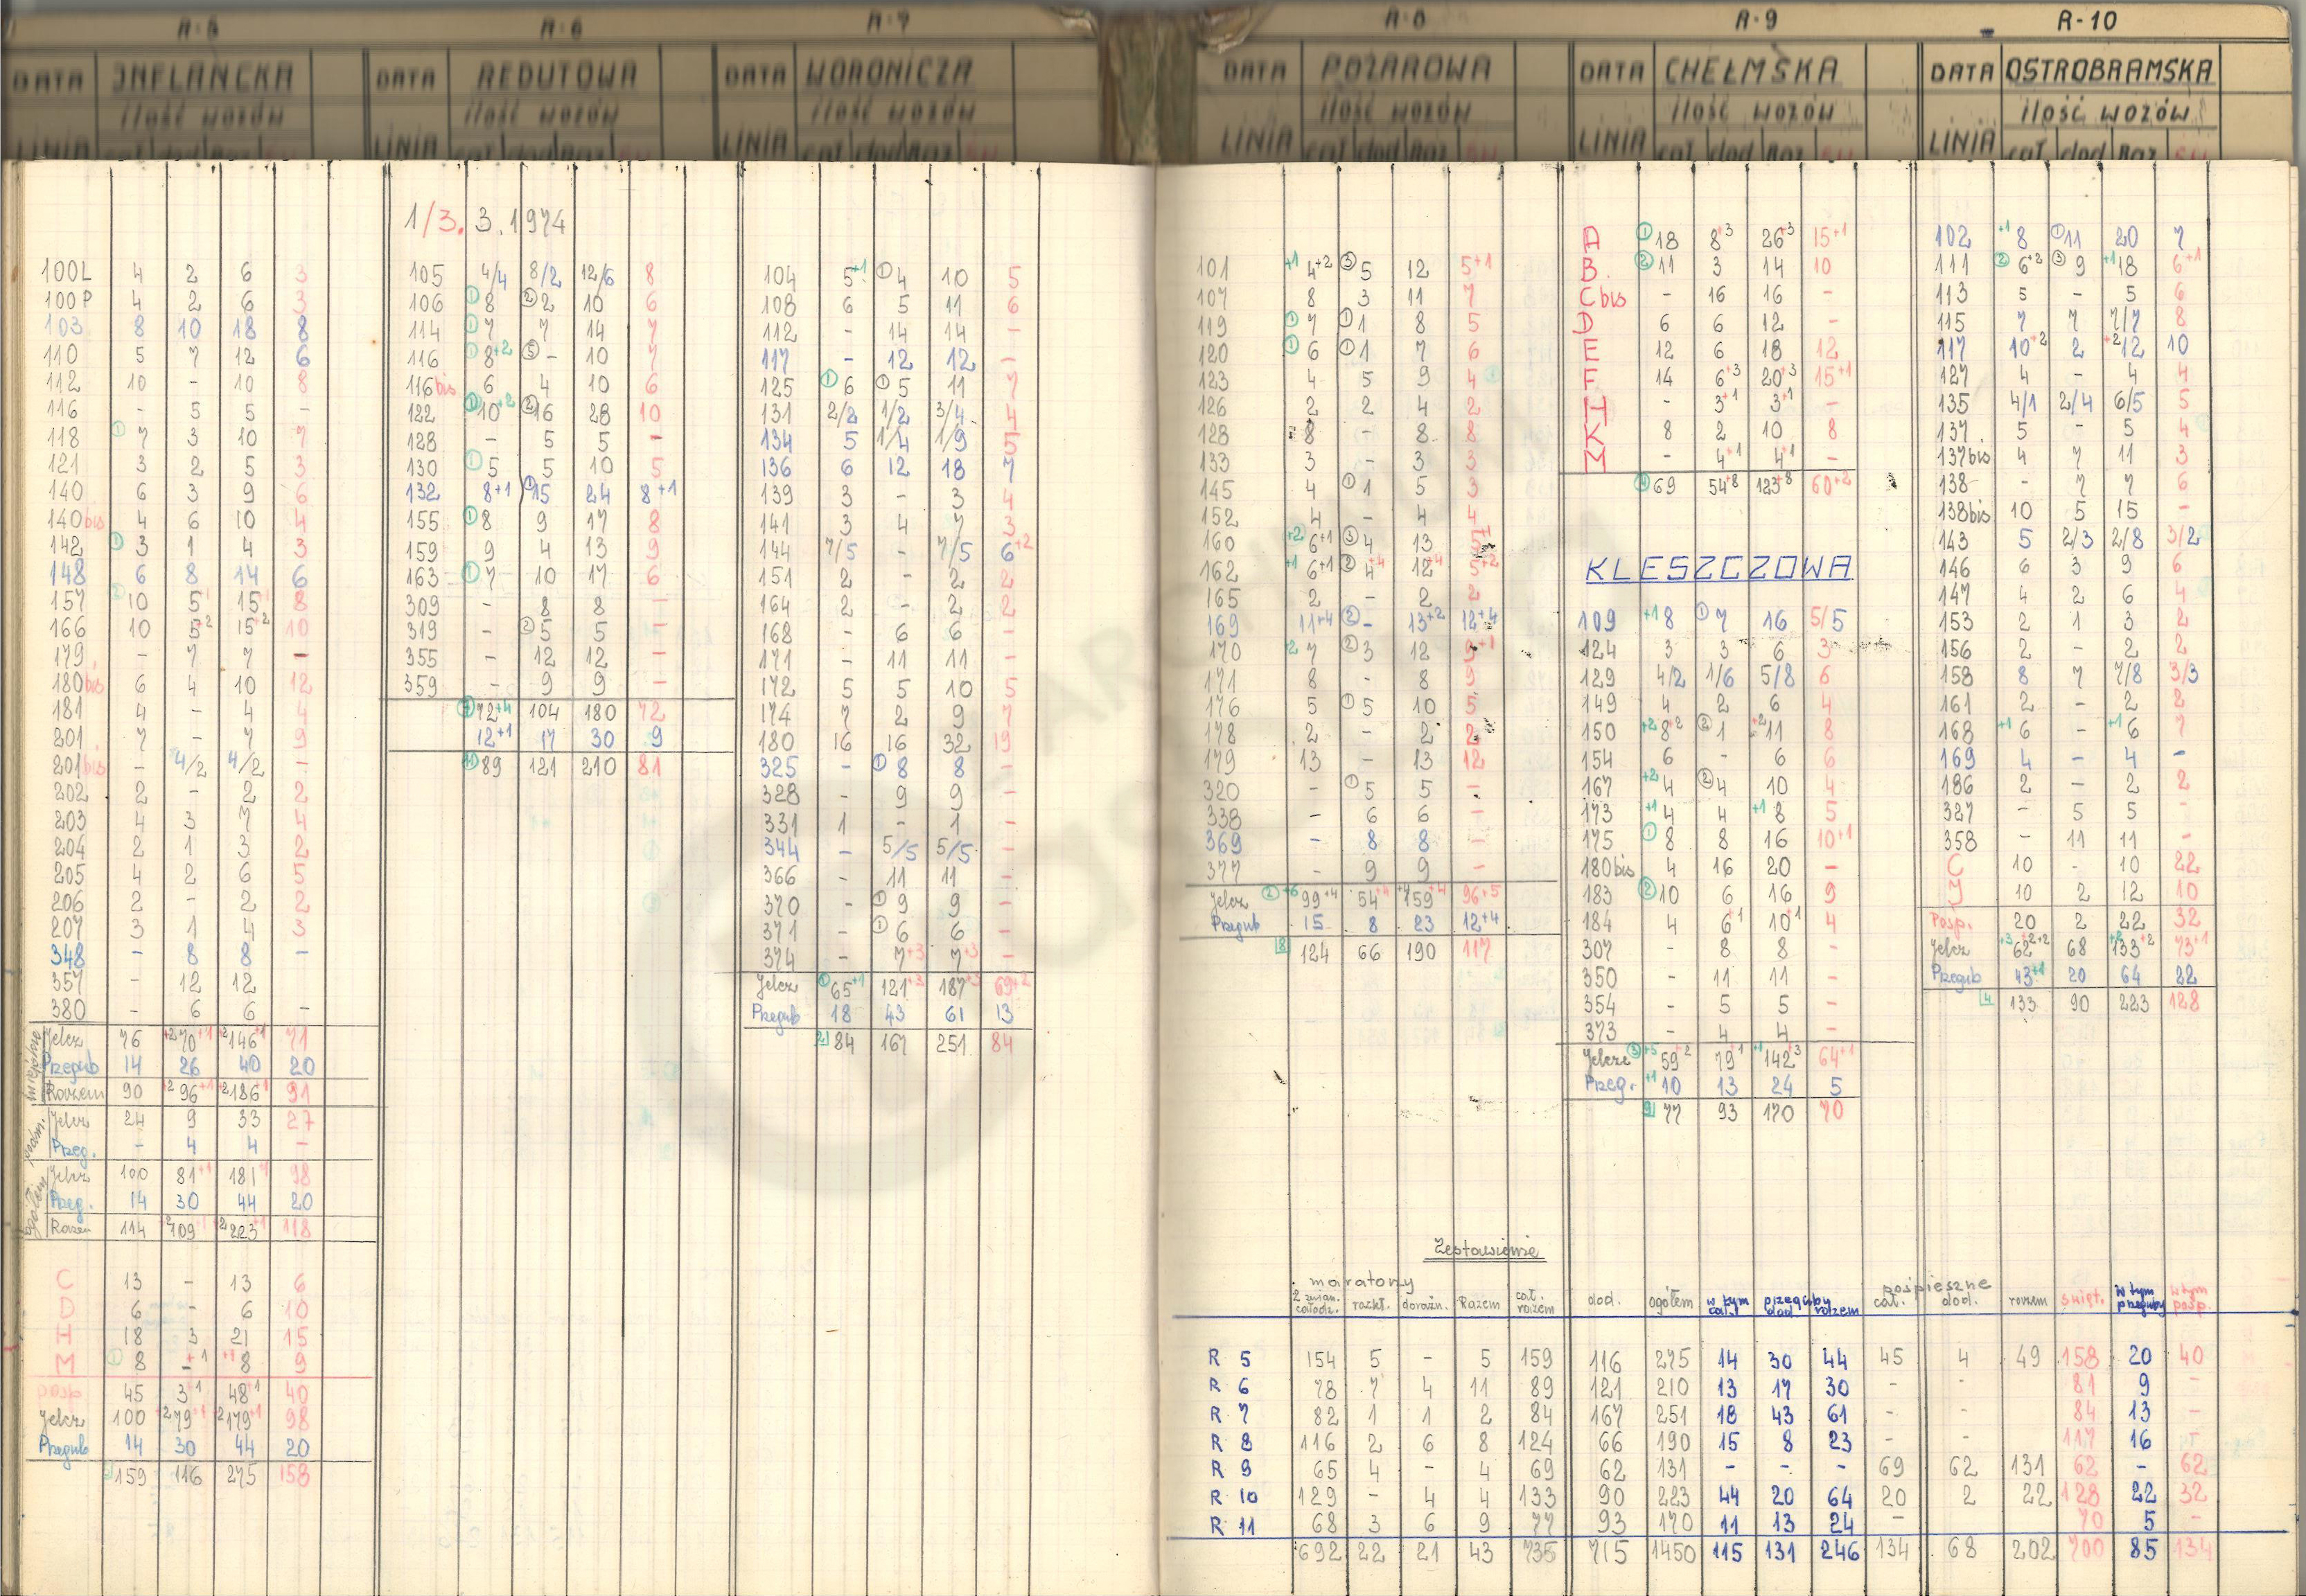 R-5 R-6 R-7 R-8 R-9 R-10
DATA INFLANCKA DATA REDUTOWA DATA WORONICZA DATA POŻAROWA DATA CHEŁMSKA DATA OSTROBRAMSKA
ilość wozów ilość wozów ilość wozów ilość wozów ilość wozów ilość wozów
LINIA cał dod Raz LINIA cał dod Raz LINIA cał dod Raz LINIA cał dod Raz LINIA cał dod Raz LINIA cał dod Raz
100L 4 2 6 3
100P 4 2 6 3
103 8 10 18 8
110 5 7 12 6
112 10 - 10 8
116 - 5 5 -
118 ① 7 3 10 7
121 3 2 5 3
140 6 3 9 6
140bis 4 6 10 4
142 ① 3 1 4 3
148 6 8 14 6
157 ② 10 5 15 8
166 10 5+2 15+2 10
179 - 7 7 -
180bis 6 4 10 12
181 4 - 4 4
201 7 - 7 9
201bis - 4/2 4/2 -
202 2 - 2 2
203 4 3 7 4
204 2 1 3 2
205 4 2 6 5
206 2 - 2 2
207 3 1 4 3
348 - 8 8 -
357 - 12 12
380 - 6 6 -
miejskie
Jelcz 76 +2 70+1 +2 146+1 71
Przegub 14 26 40 20
Razem 90 +2 96+1 +2 186+1 91
Jelcz 24 9 33 27
Przeg. - 4 4 -
ogółem
Jelcz 100 81+1 181+1 98
Przeg. 14 30 44 20
Razem 114 +2 109+1 +2 223+1 118
C 13 - 13 6
D 6 - 6 10
H 18 3 21 15
M ① 8 -+1 +1 8 9
posp 45 3+1 48+1 40
Jelcz 100 +2 79+1 2 179+1 98
Przegub 14 30 44 20
159 116 275 158
1/3. 3.1974
105 4/4 8/2 12/6 8
106 ① 8 ② 2 10 6
114 ① 7 7 14 7
116 ① 8+2 ⑤ - 10 7
116bis 6 4 10 6
122 ① 10+2 ② 16 28 10
128 - 5 5 -
130 ① 5 5 10 5
132 8+1 ① 15 24 8+1
155 ① 8 9 17 8
159 9 4 13 9
163 ① 7 10 17 6
309 - 8 8 -
319 - ② 5 5 -
355 - 12 12 -
359 - 9 9 -
⑦ 72+4 104 180 72
12+1 17 30 9
⑪ 89 121 210 81
104 5+1 ① 4 10 5
108 6 5 11 6
112 - 14 14 -
117 - 12 12 -
125 ① 6 ① 5 11 7
131 2/2 1/2 3/4 4
134 5 1/4 1/9 5
136 6 12 18 7
139 3 - 3 4
141 3 4 7 3
144 7/5 - 7/5 6+2
151 2 - 2 2
164 2 - 2 2
168 - 6 6 -
171 - 11 11 -
172 5 5 10 5
174 7 2 9 7
180 16 16 32 19
325 - ① 8 8 -
328 - 9 9 -
331 1 - 1 -
344 - 5/5 5/5 -
366 - 11 11 -
370 - ① 9 9 -
371 - ① 6 6 -
374 - 7+3 7+3 -
Jelcz ① 65+1 121+3 187+3 69+2
Przegub 18 43 61 13
2 84 167 251 84
101 +1 4+2 ③ 5 12 5+1
107 8 3 11 7
119 ① 7 ① 1 8 5
120 ① 6 ① 1 7 6
123 4 5 9 4
126 2 2 4 2
128 8 - 8 8
133 3 - 3 3
145 4 ① 1 5 3
152 4 - 4 4
160 +2 6+1 ③ 4 13 5+1
162 +1 6+1 ② 4+4 12+4 5+2
165 2 - 2 2
169 11+4 ② - 13+2 12+4
170 +2 7 ② 3 12 9+1
171 8 - 8 9
176 5 ① 5 10 5
178 2 - 2 2
179 13 - 13 12
320 - ① 5 5 -
338 - 6 6 -
369 - 8 8 -
377 - 9 9 -
Jelcz ② +6 99+4 54+4 +4 159+4 96+5
Przegub 15 8 23 12+4
8 124 66 190 117
A ① 18 8+3 26+3 15+1
B ② 11 3 14 10
Cbis - 16 16 -
D 6 6 12 -
E 12 6 18 12
F 14 6+3 20+3 15+1
H - 3+1 3+1 -
K 8 2 10 8
M - 4+1 4+1 -
④ 69 54+8 123+8 60+2
KLESZCZOWA
109 +1 8 ① 7 16 5/5
124 3 3 6 3
129 4/2 1/6 5/8 6
149 4 2 6 4
150 +2 8+2 ② 1 +2 11 8
154 6 - 6 6
167 +2 4 ② 4 10 4
173 +1 4 4 +1 8 5
175 ① 8 8 16 10+1
180bis 4 16 20 -
183 ② 10 6 16 9
184 4 6+1 10+1 4
307 - 8 8 -
350 - 11 11 -
354 - 5 5 -
373 - 4 4 -
Jelcze ③ +5 59+2 79+1 +1 142+3 64+1
Przeg. +1 10 13 24 5
9 77 93 170 70
102 +1 8 ① 11 20 7
111 ② 6+2 ③ 9 +1 18 6+1
113 5 - 5 6
115 7 7 7/7 8
117 10+2 2 +2 12 10
127 4 - 4 4
135 4/1 2/4 6/5 5
137 5 - 5 4
137bis 4 7 11 3
138 - 7 7 6
138bis 10 5 15 -
143 5 2/3 2/8 3/2
146 6 3 9 6
147 4 2 6 4
153 2 1 3 2
156 2 - 2 2
158 8 7 7/8 3/3
161 2 - 2 2
168 +1 6 - +1 6 7
169 4 - 4 -
186 2 - 2 2
327 - 5 5 -
358 - 11 11 -
C 10 - 10 22
J 10 2 12 10
Posp. 20 2 22 32
Jelcz +3 62+2+2 68 133+2 73+1
Przegub 43+1 20 64 22
4 133 90 223 128
Zestawienie
maratony pośpieszne
2 zmian. całodz. rozkł. doraźn. Razem cał. razem dod. ogółem w tym cał. przeguby dod razem cał. dod. razem święt. w tym przeguby w tym posp.
R 5 154 5 - 5 159 116 275 14 30 44 45 4 49 158 20 40
R 6 78 7 4 11 89 121 210 13 17 30 - - 81 9 -
R 7 82 1 1 2 84 167 251 18 43 61 - - 84 13 -
R 8 116 2 6 8 124 66 190 15 8 23 - - 117 16 -
R 9 65 4 - 4 69 62 131 - - - 69 62 131 62 - 62
R 10 129 - 4 4 133 90 223 44 20 64 20 2 22 128 22 32
R 11 68 3 6 9 77 93 170 11 13 24 - 70 5 -
692 22 21 43 735 715 1450 115 131 246 134 68 202 700 85 134